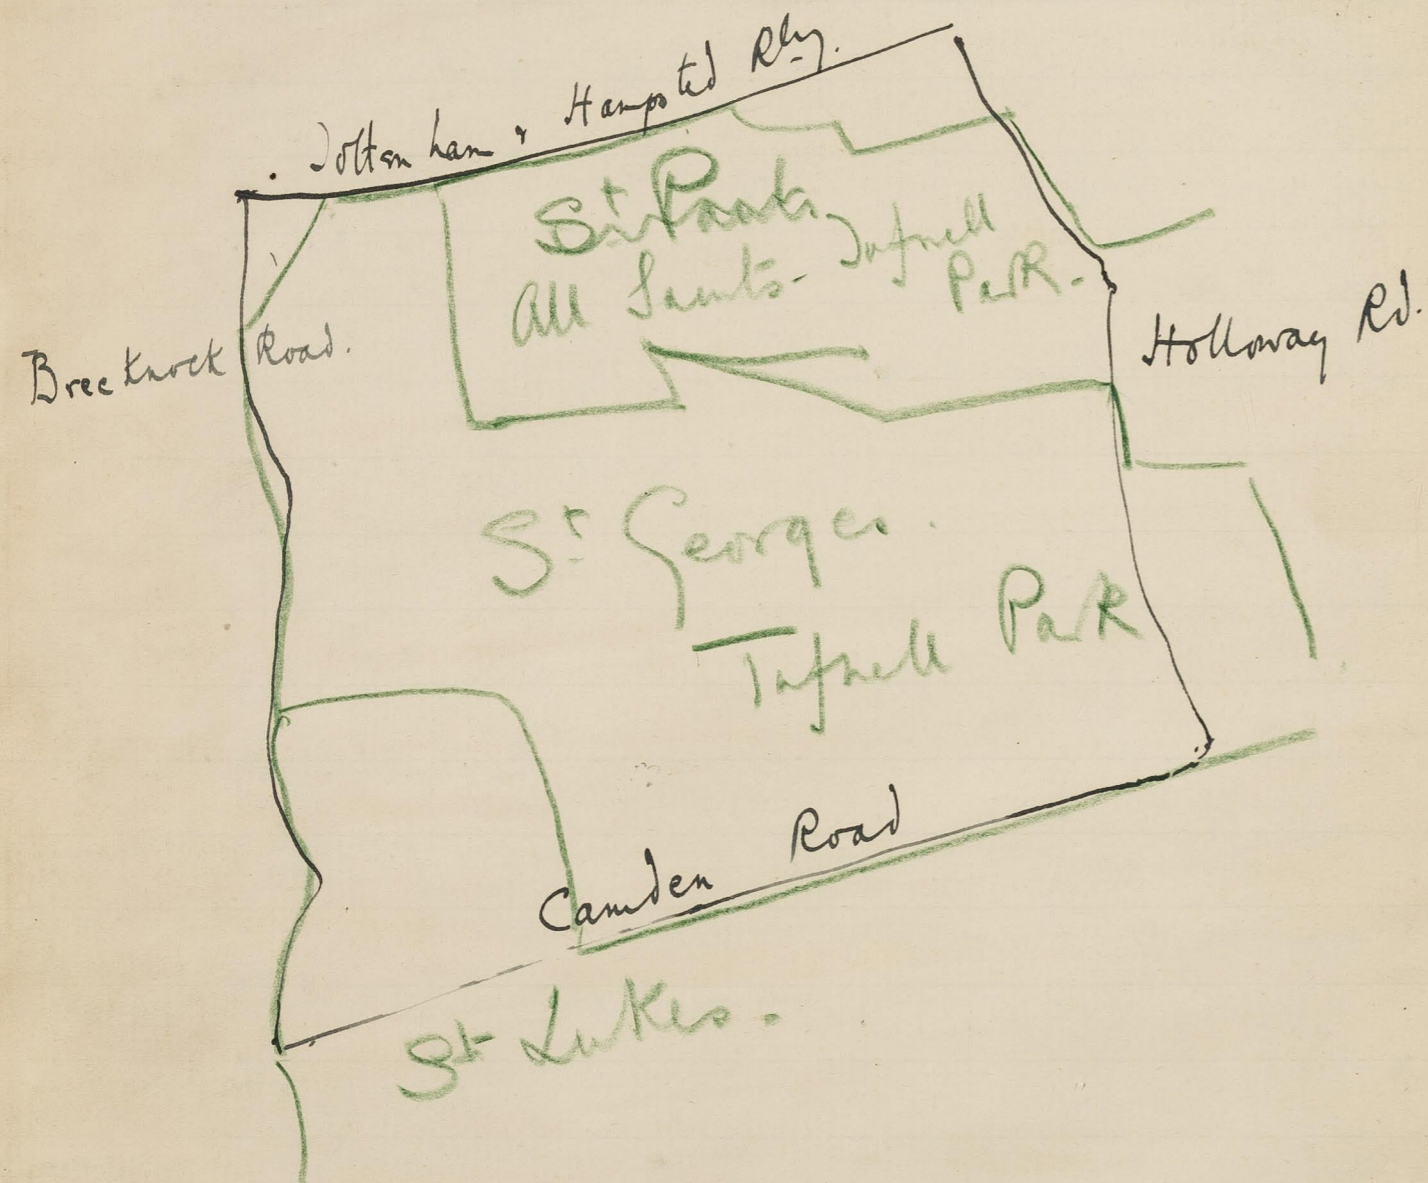 Tottenham & Hampsted Rly.
St
All Saints - Tufnell
Park.
Brecknock Road.
Holloway Rd.
St Georges.
Tufnell Park
Camden Road
St Lukes.